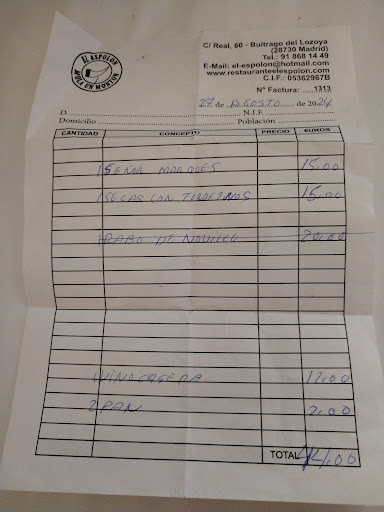 EL ESPOLON
MOLA UN MONTON
C/ Real, 60 - Buitrago del Lozoya
(28730 Madrid)
Tel.: 91 868 14 49
E-Mail: el-espolon@hotmail.com
www.restauranteelespolon.com
C.I.F.: 05362967B
Nº Factura: 1313
27 de AGOSTO de 2024
D. N.I.F.
Domicilio Población
CANTIDAD CONCEPTO PRECIO EUROS
1 SEÑOR MARQUES 15,00
1 SECAS CON TORREZNOS 15,00
1 RABO DE NOVILLO 20,00
1 VINO CASERA 12,00
2 PAN 2,00
TOTAL 44,00